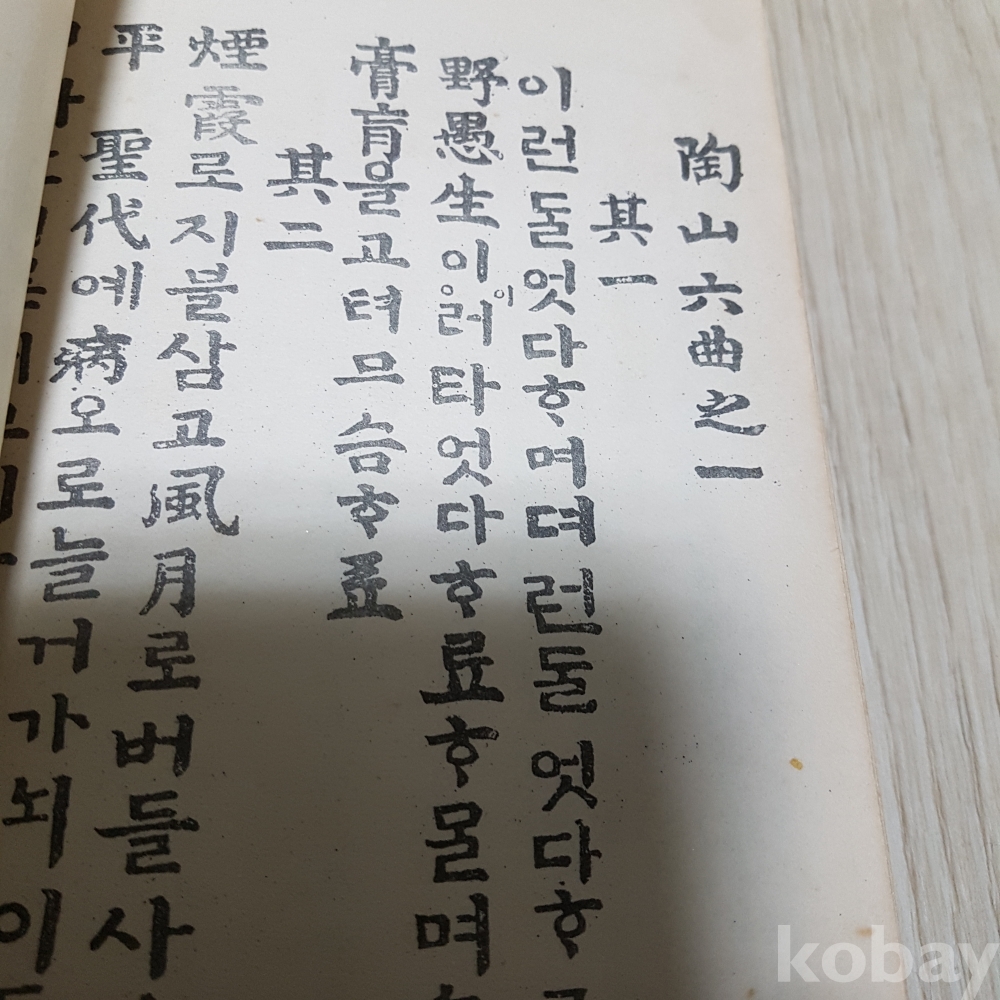 陶山六曲之一
其一
이런ᄃᆞᆯ엇다ᄒᆞ며뎌런ᄃᆞᆯ엇다ᄒᆞ
野愚生이이러타엇다ᄒᆞ료ᄒᆞᄆᆞᆯ며
膏肓을고텨므슴ᄒᆞ료
其二
煙霞로지블삼고風月로버들사
平聖代예病오로늘거가뇌이
kobay